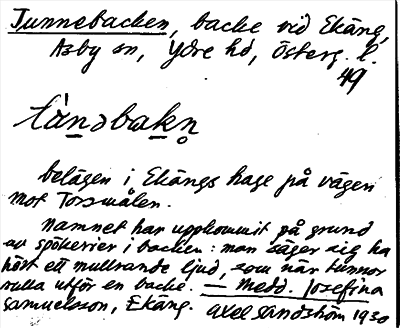 Tunnebacken, backe vid Ekäng,
Asby sn, Ydre hd, Österg. l.
49
belägen i Ekängs hage på vägen
mot Torsmålen.
Namnet har uppkommit på grund
av spökerier i backen: man säger sig ha
hört ett mullrande ljud, som när tunnor
rulla utför en backe. — Medd. Josefina
Samuelsson, Ekäng. Axel Sandström 1930